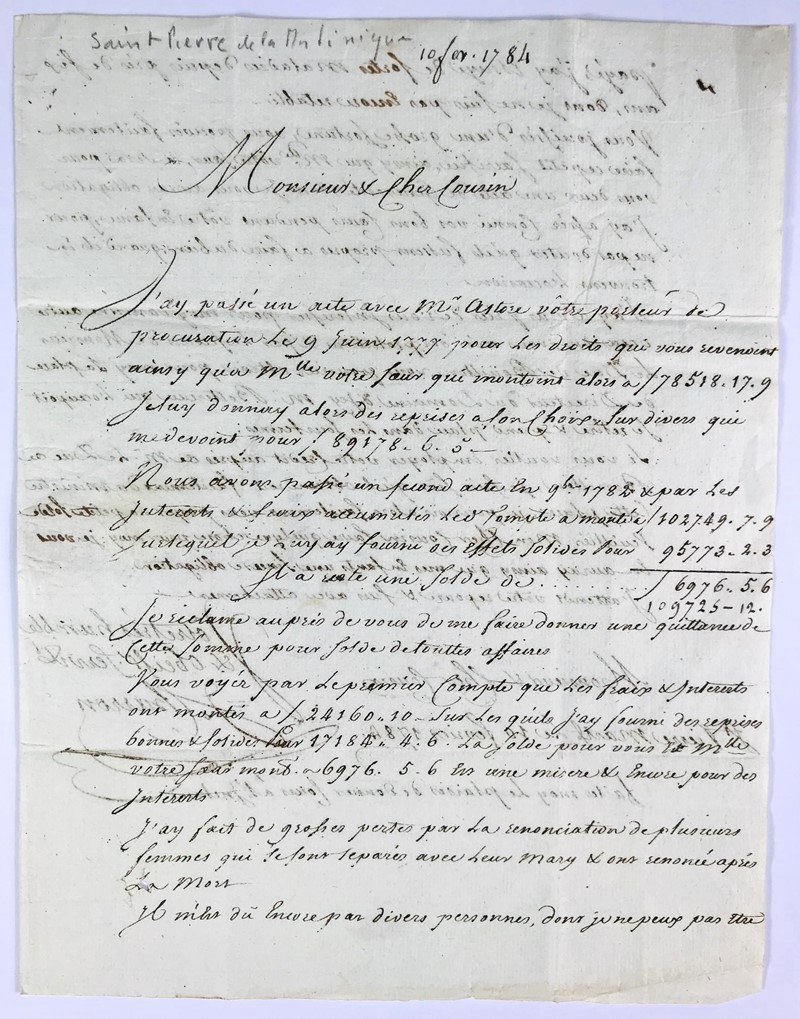 Saint Pierre de la Martinique
10 fev. 1784
Monsieur & Cher Cousin
J'ay passé un acte avec Mr. Astore vôtre porteur de
procuration Le 9 Juin 1777 pour Les droits qui vous revenoint
ainsy qu'a Mlle votre sœur qui montoint alors a £ 78518.17.9
Je luy donnay alors des reprises a son Choix, sur divers qui
me devoint pour £ 89178.6.5.
Nous avons passé un second acte En 9bre 1782 & par Les
Interets & fraix accumulés Led. Compte a monté a £ 102749.7.9
surlequel je Luy ay fourni des Effets solides pour 95773.2.3
Il a resté une Solde de ........ £ 6976.5.6
109725-12.
Je réclame auprés de vous de me faire donner une quittance de
Cette Somme pour solde detouttes affaires
Vous voyés par Lepremier Compte que Les fraix & Interets
ont montés a £ 24160.10 - sur Les quels J'ay fourni des reprises
bonnes & solides pour 17184.4.6. La solde pour vous & Mlle
votre sœur mont. a 6976.5.6 Est une misere & Encore pour des
Interets
J'ay fait de grosses pertes par La renonciation de plusieurs
femmes qui se sont separés avec Leur Mary & ont renoncé après
La Mort
Il m'est dû Encore par divers personnes, dont je ne peux pas Etre